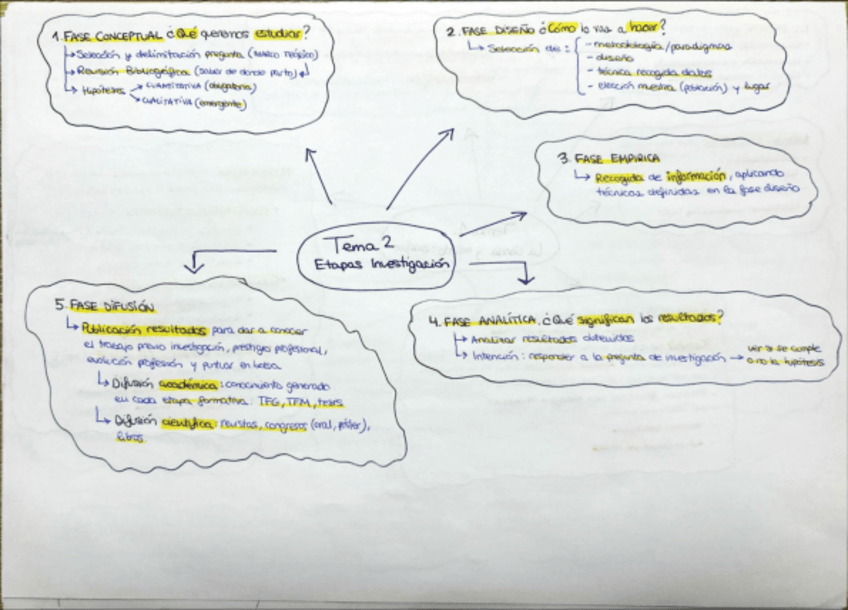 1. FASE CONCEPTUAL ¿Qué queremos estudiar?
↳ Selección y delimitación pregunta (marco teórico)
↳ Revisión Bibliográfica (saber de donde parto)
↳ Hipótesis → CUANTITATIVA (obligatoria)
→ CUALITATIVA (emergente)
2. FASE DISEÑO ¿Cómo lo vas a hacer?
↳ Selección de: - metodología/paradigma
- diseño
- técnica recogida datos
- elección muestra (población) y lugar
3. FASE EMPIRICA
↳ Recogida de información, aplicando
técnicas definidas en la fase diseño
Tema 2
Etapas Investigación
4. FASE ANALÍTICA. ¿Qué significan los resultados?
↳ Analizar resultados obtenidos
↳ Intención: responder a la pregunta de investigación → ver si se cumple
o no la hipótesis
5. FASE DIFUSIÓN
↳ Publicación resultados para dar a conocer
el trabajo previo investigación, prestigio profesional,
evolución profesión y puntuar en bolsa
↳ Difusión académica: conocimiento generado
en cada etapa formativa. TFG, TFM, tesis
↳ Difusión científica: revistas, congresos (oral, póster),
libros